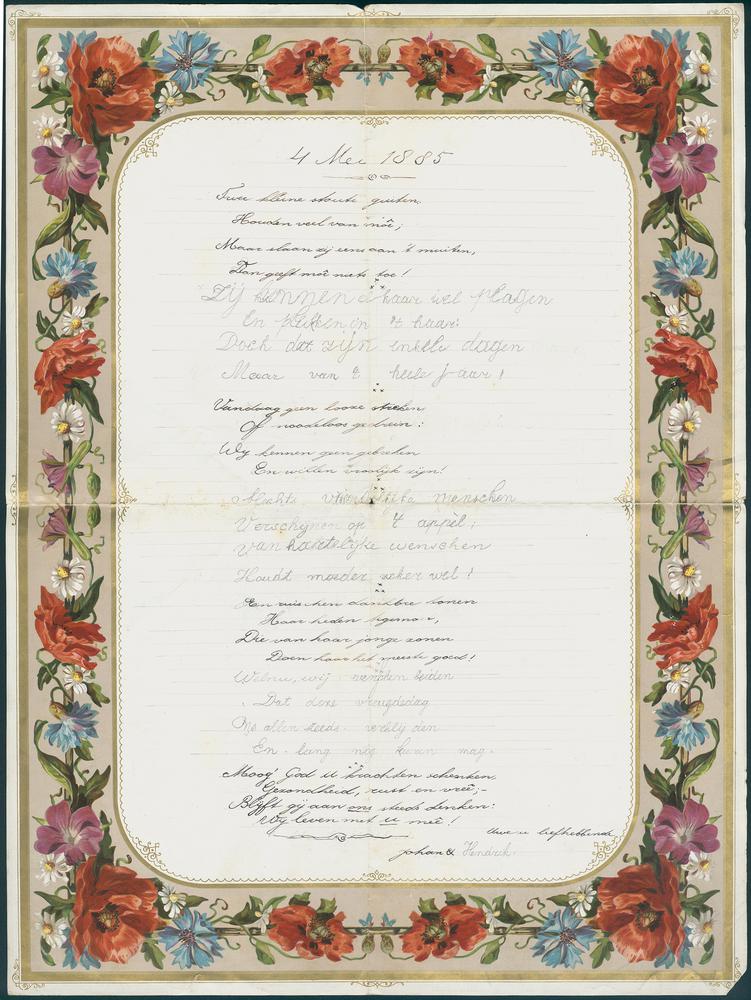 4 Mei 1885
Twee kleine stoute guiten,
Houden veel van moê;
Maar slaan zij eens aan 't muiten,
Dan geeft moê niets toe!
Zij kunnen haar wel plagen
En plukken in 't haar:
Doch dat zijn enkele dagen
Maar van 't heele jaar!
Vandaag geen looze streken
Of noodeloos gedrein:
Wy kennen geen gebreken
En willen vroolijk zijn!
Slechts vriendelijke menschen
Verschijnen op 't appèl;
Van hartelijke wenschen
Houdt moeder zeker wel!
En ruischen dankbre tonen
Haar heden tegemoet,
Die van haar jonge zonen
Doen haar het meeste goed!
Welnu, wij wenschen beiden
Dat deze vreugdedag
Ons allen steeds verblijden
En lang nog keeren mag.
Moog' God U krachten schenken,
Gezondheid, rust en vreê;-
Blijft gij aan ons steeds denken:
Wy leven met U meê!
Uwe U liefhebbende
Johan & Hendrik.